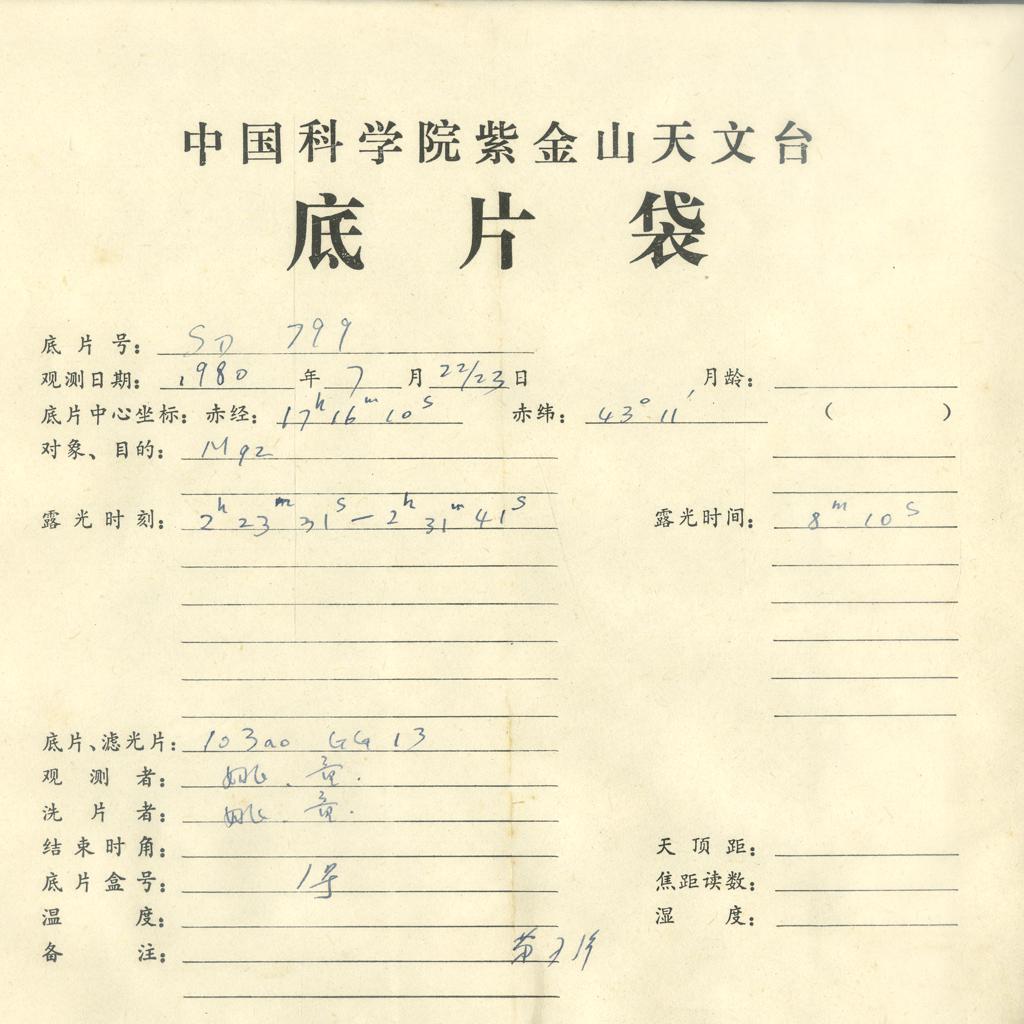 中国科学院紫金山天文台
底片袋
底片号： SD 799
观测日期： 1980 年 7 月 22/23 日 月龄：
底片中心坐标：赤经： 17h 16m 10s 赤纬： 43° 11′ （ ）
对象、目的： M92
露光时刻： 2h 23m 31s — 2h 31m 41s 露光时间： 8m 10s
底片、滤光片： 103ao GG 13
观测者： 姚. 童.
洗片者： 姚. 童.
结束时角： 天顶距：
底片盒号： 1号 焦距读数：
温度： 湿度：
备注：